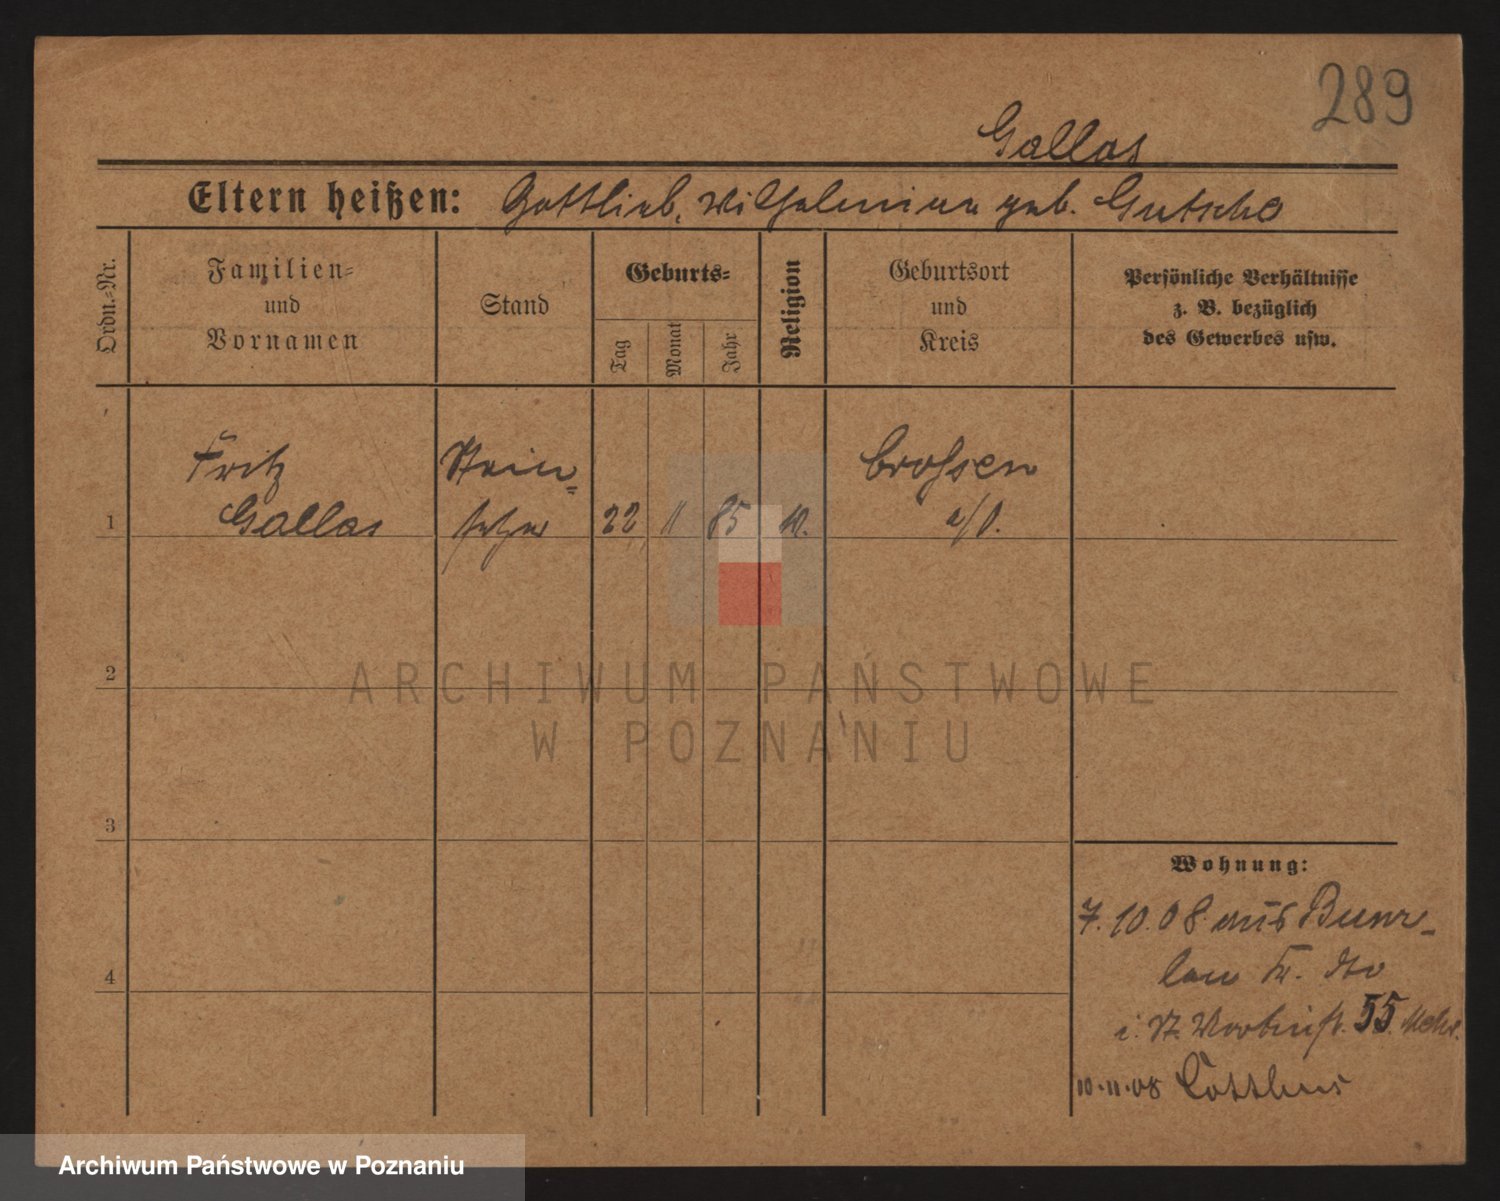 289
Gallas
Eltern heißen: Gottlieb, Wilhelmine geb. Gutsche
Ordn.-Nr.
Familien-
und
Vornamen
Stand
Geburts-
Tag
Monat
Jahr
Religion
Geburtsort
und
Kreis
Persönliche Verhältnisse
z. B. bezüglich
des Gewerbes usw.
Fritz
Gallas
Stein-
setzer
1
22
11
85
Crossen
a/O.
2
3
4
Wohnung:
7.10.08. aus Bunz-
lau
55
10.11.08 Cottbus
ARCHIWUM PAŃSTWOWE
W POZNANIU
Archiwum Państwowe w Poznaniu